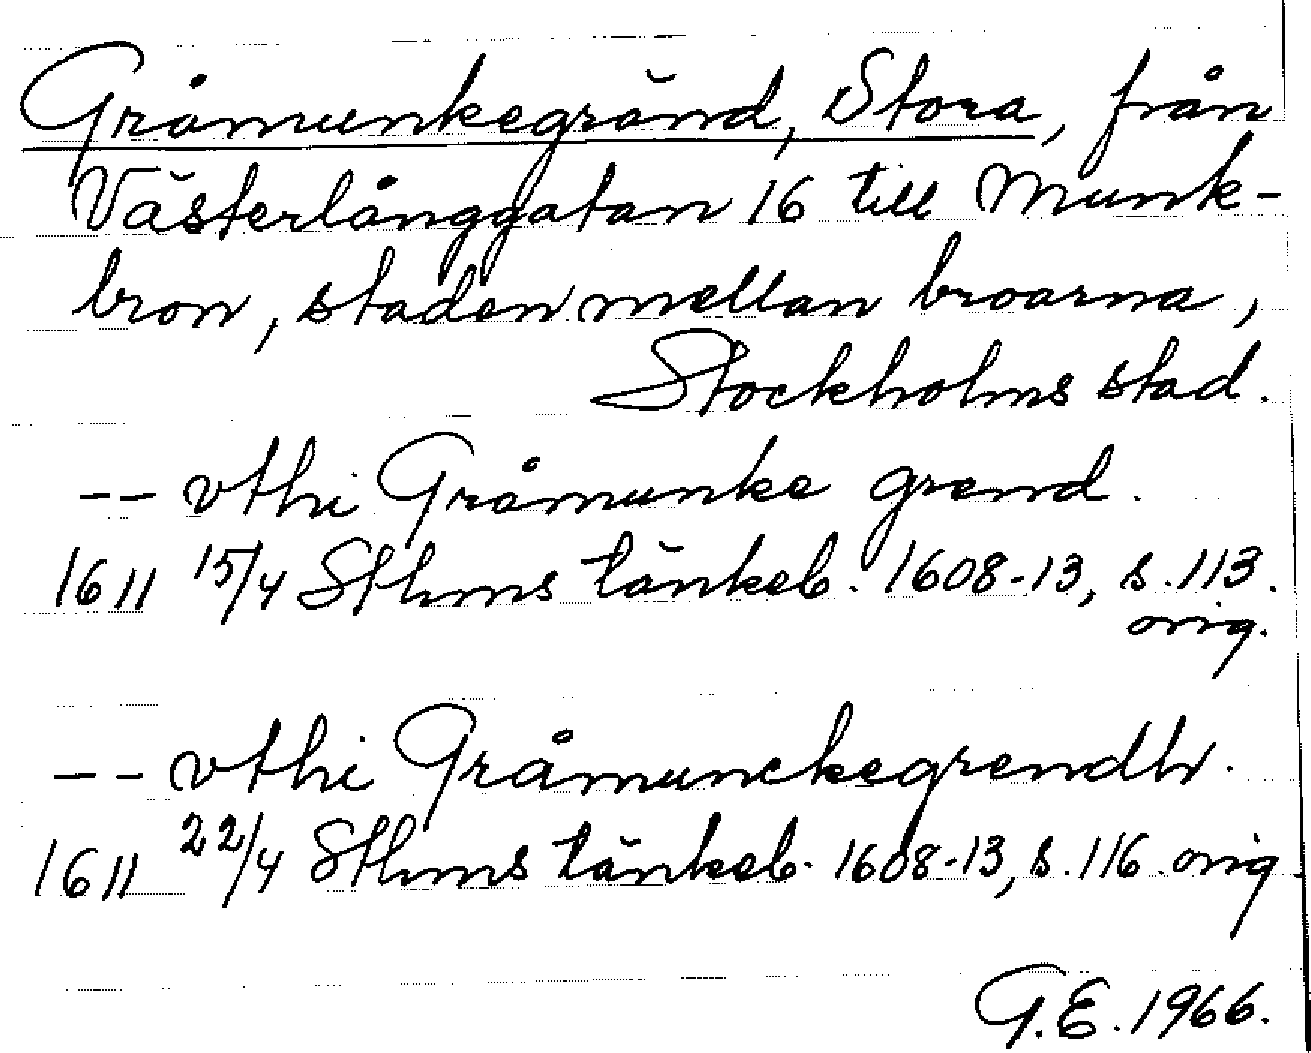 Gråmunkegränd, Stora, från
Västerlånggatan 16 till Munk-
bron, staden mellan broarna,
Stockholms stad.
-- vthi Gråmunke grend.
1611 15/4 Sthms tänkeb. 1608-13, s. 113.
orig.
-- vthi Gråmunckegrendh.
1611 22/4 Sthms tänkeb. 1608-13, s. 116. orig
G.E. 1966.